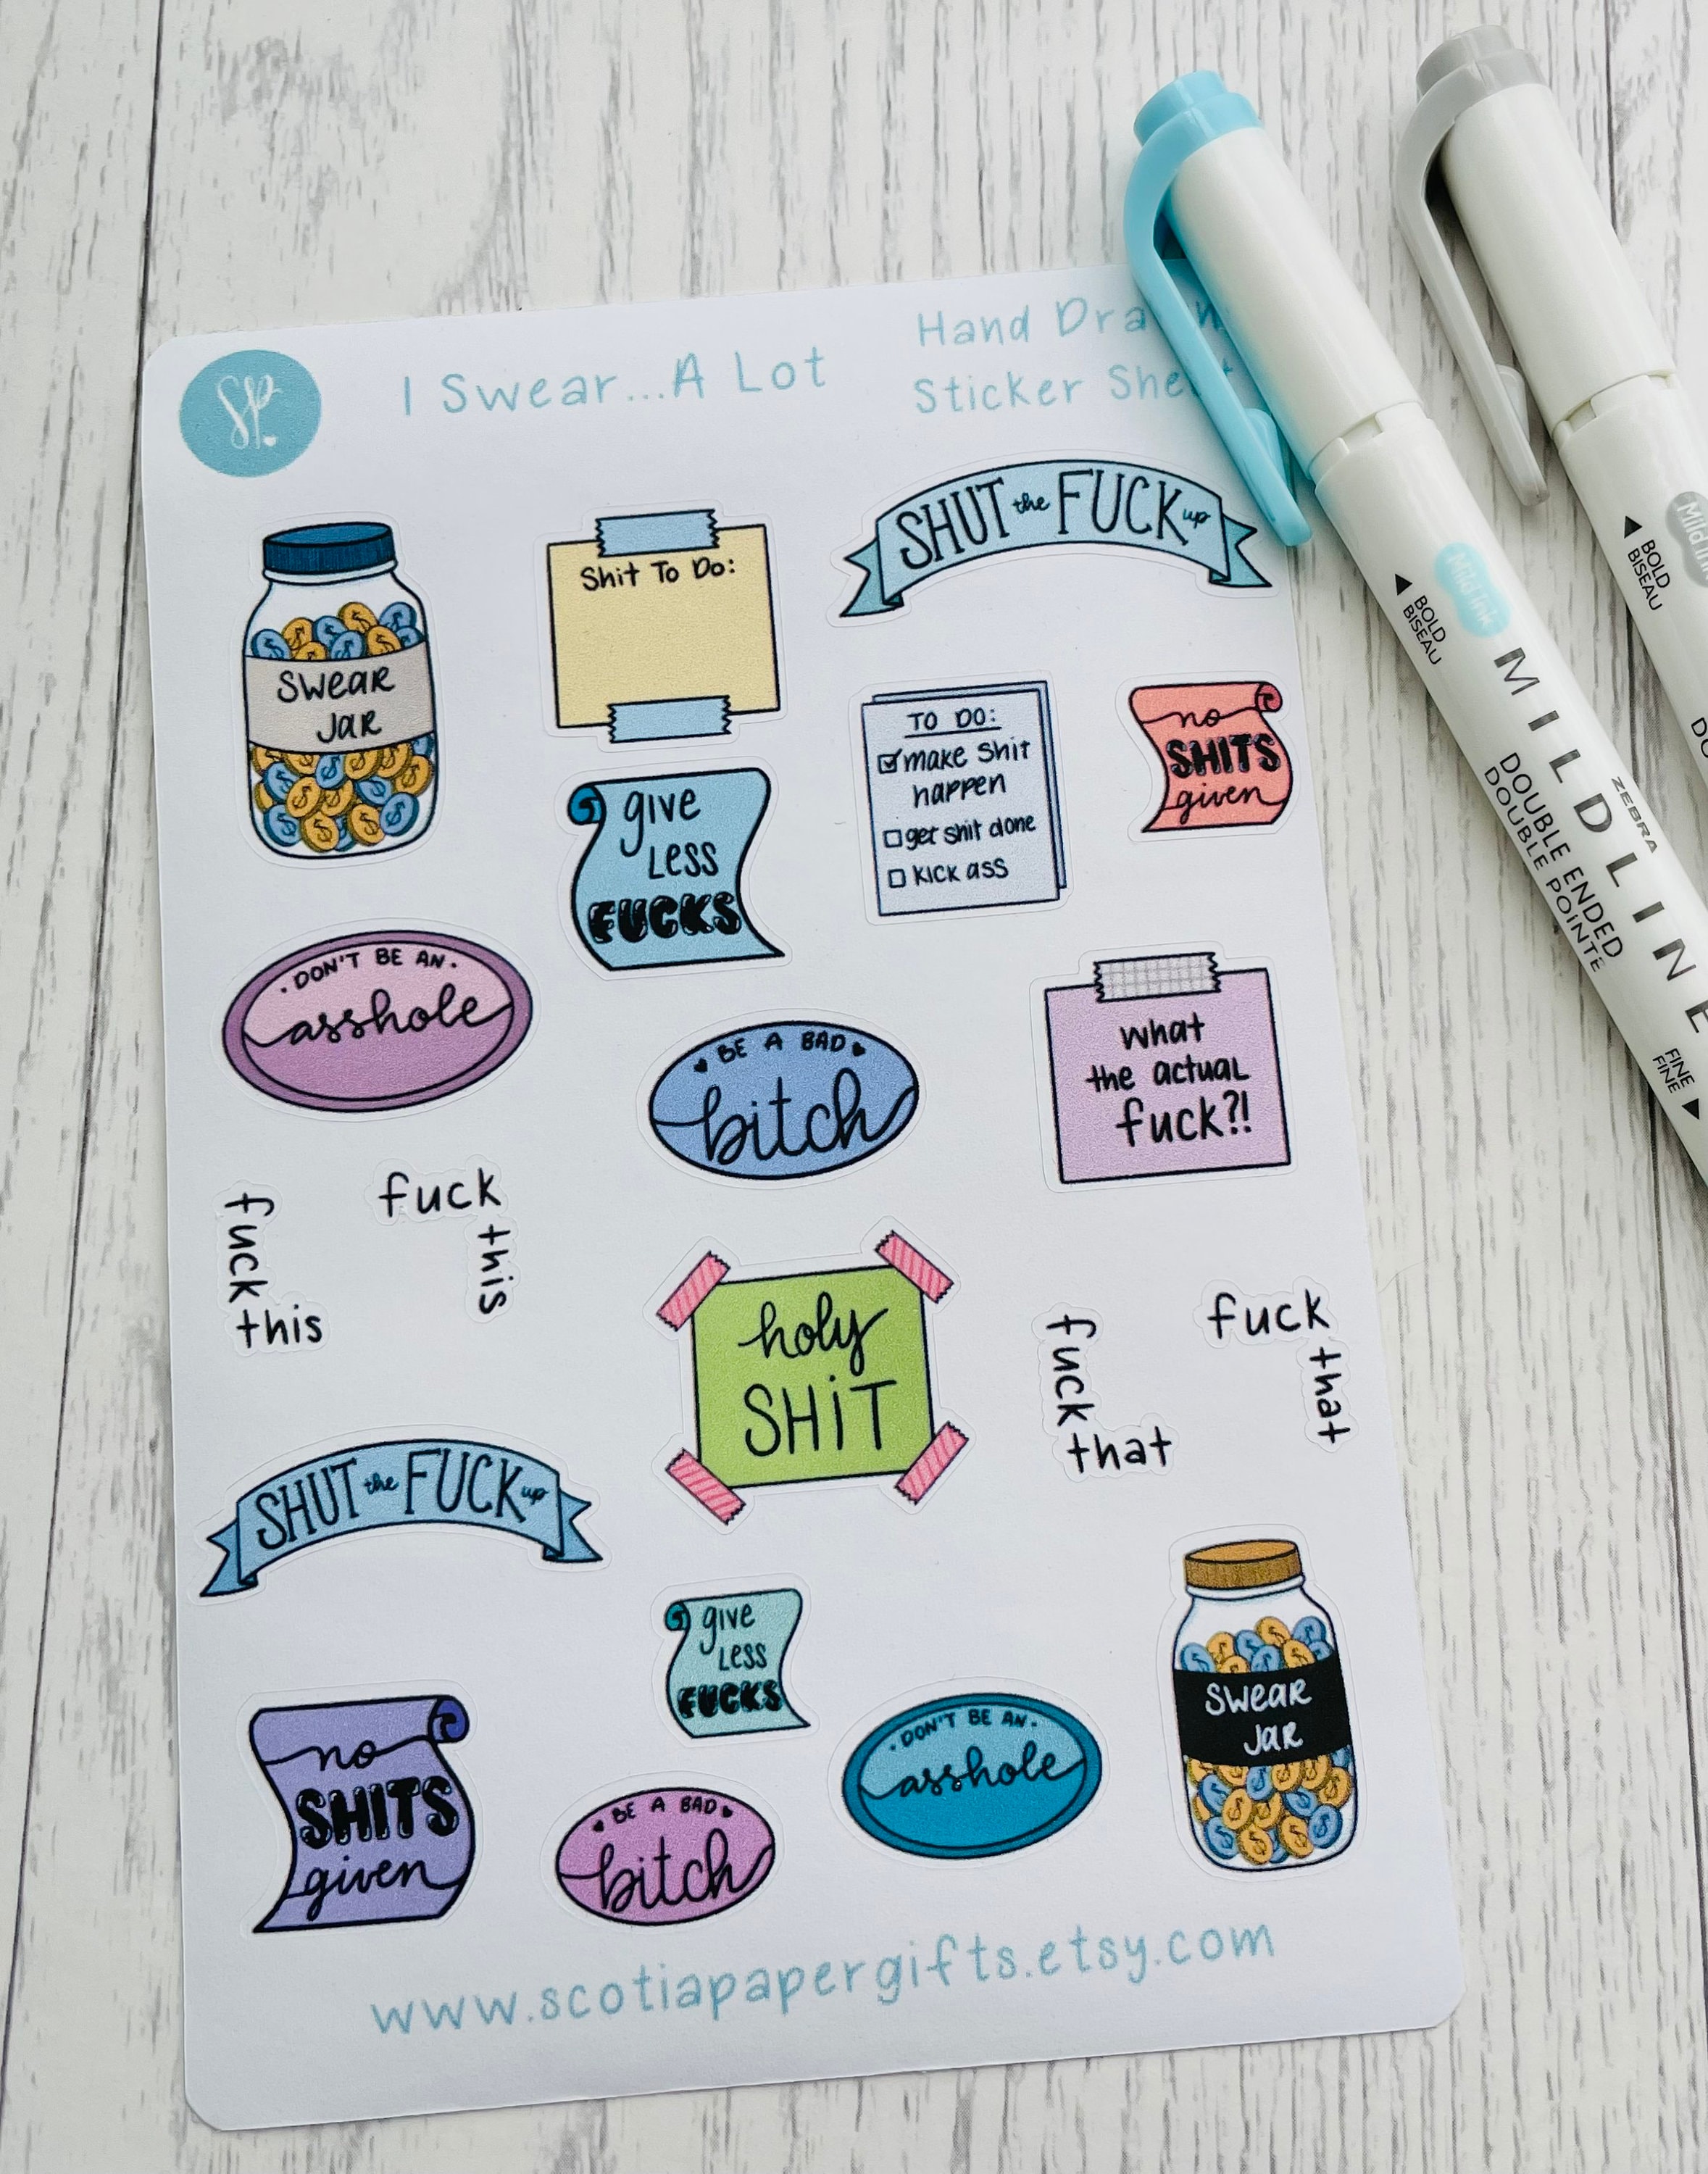 SP
I Swear...A Lot
Hand Dra n
Sticker Sheet
SHUT the FUCK up
Shit To Do:
SWEAR
JAR
TO DO:
make Shit
happen
get shit done
kick ass
no
SHITS
given
give
LESS
FUCKS
DON'T BE AN
asshole
BE A BAD
bitch
what
the actual
fuck?!
fuck
this
fuck
this
holy
SHiT
fuck
that
fuck
that
SHUT the FUCK up
give
LESS
FUCKS
SWEAR
JAR
no
SHITS
given
BE A BAD
bitch
DON'T BE AN
asshole
www.scotiapapergifts.etsy.com
BOLD
BISEAU
Mild ink
MILDLINE
ZEBRA
DOUBLE ENDED
DOUBLE POINTE
FINE
FINE
BOLD
BISEAU